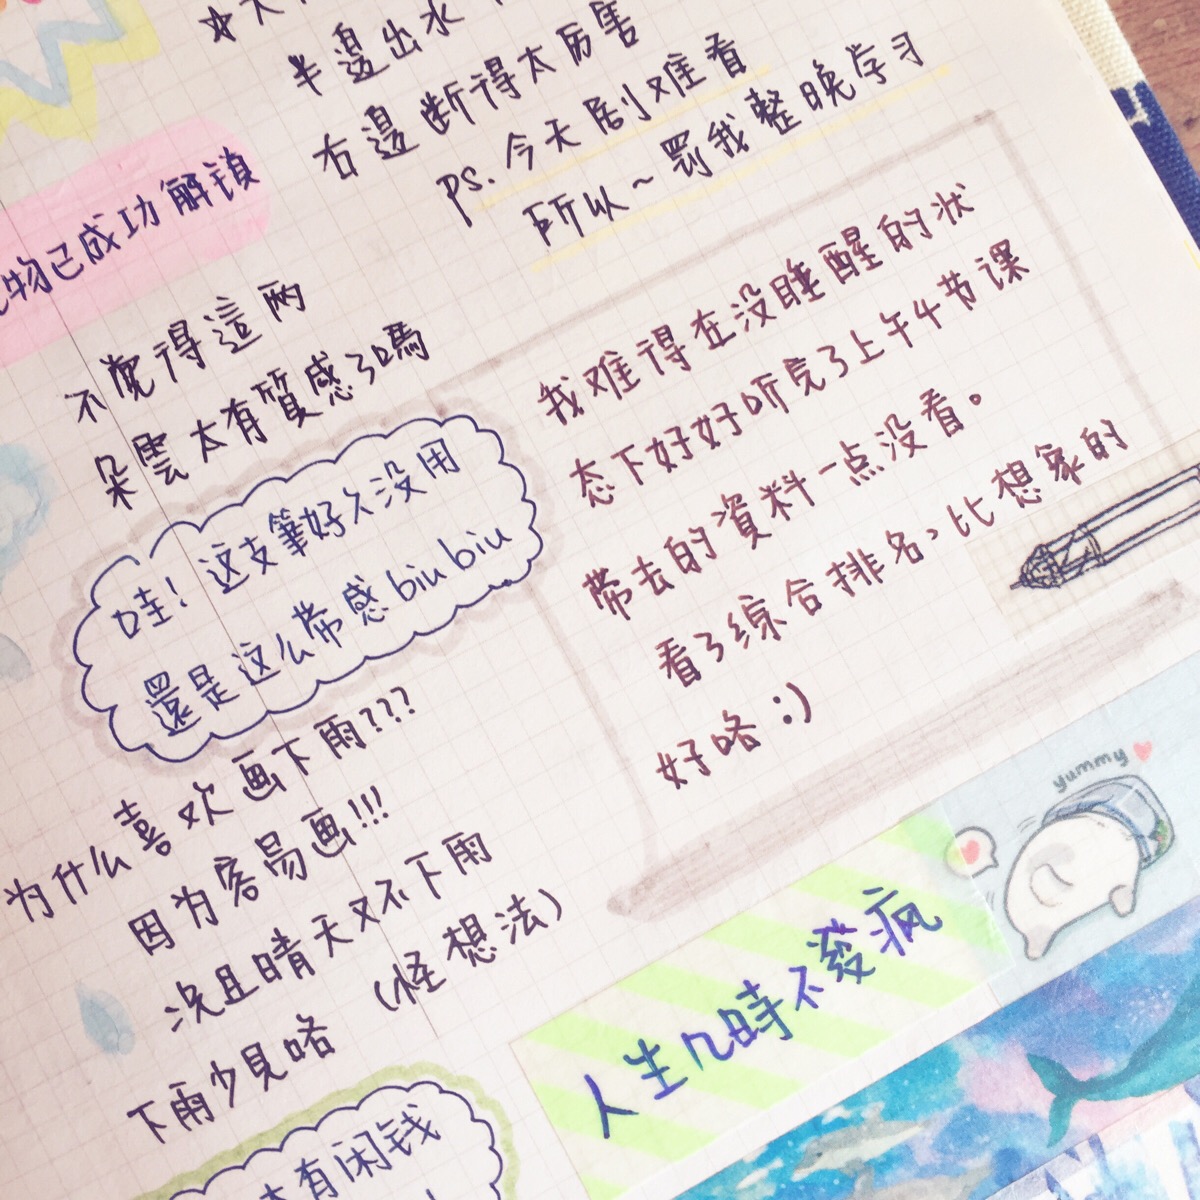 半邊出水
右邊断得太厉害
ps.今天剧难看
所以~罰我整晚学习
物已成功解锁
不覺得這两
朵雲太有質感了口嗎
哇!这支筆好久没用
還是这么带感biubiu
我难得在没睡醒的状
态下好好听完了上午4节课
带去的資料一点没看。
看了综合排名、比想象的
好咯:)
为什么喜欢画下雨???
因为容易画!!!
况且晴天又不下雨
下雨少見咯 (怪想法)
yummy
人生几時不發疯
有闲钱